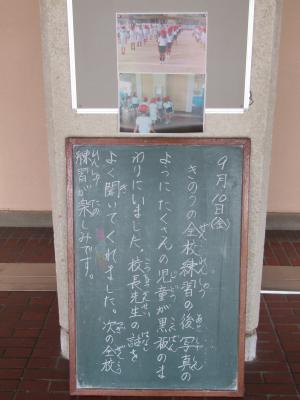 9月10日(金)
きのうの全校練習の後写真の
ようにたくさんの児童が黒板のま
わりにいました。校長先生の話を
よく聞いてくれました。次の全校
練習が楽しみです。